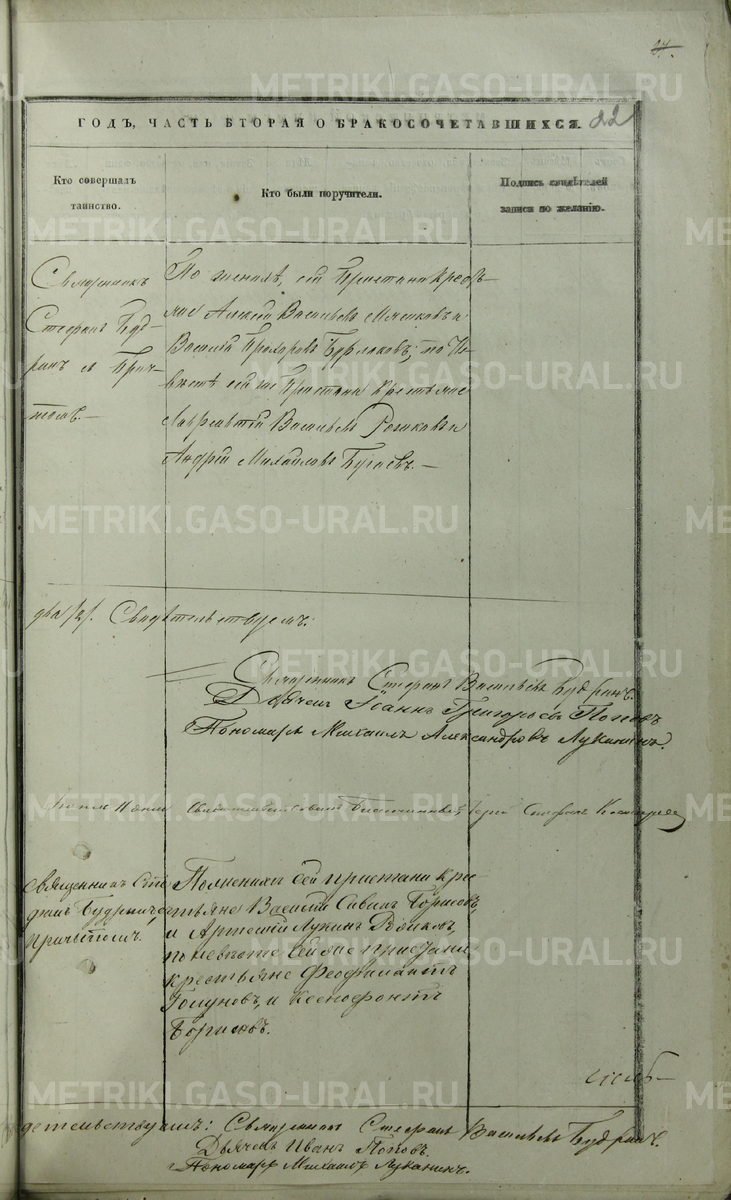 22
ГОДЪ, ЧАСТЬ ВТОРАЯ О БРАКОСОЧЕТАВШИХСЯ.
Кто совершалъ
таинство.
Кто были поручители.
Подпись свидѣтелей
записи по желанію.
Священникъ
Стефанъ Буд-
ринъ съ При-
томъ.
По женихѣ, сей Пристани Кресть-
яне Алексѣй Васильевъ и
Василій Прохоровъ Бурлаковъ; по Не-
вѣстѣ сей же Пристани Крестьяне
Лаврентій Васильевъ и
Андрей Михайловъ Бугаевъ.
два /2/. Свидѣтельствуемъ:
Священникъ Стефанъ Васильевъ Будринъ.
Дьячекъ Іоаннъ Григорьевъ Поповъ
Пономарь Михаилъ Александровъ Луканинъ.
Іюня
Свидѣтельствовалъ Благочинный, Іерей Стефанъ
Священникъ Сте-
фанъ Будринъ съ
причтомъ.
По женихѣ сей пристани кре-
стьяне Василій Борисовъ,
и Артемій Лукинъ
по невѣсте сей же пристани
крестьяне Феофилактъ
Голуновъ, и Ксенофонтъ
Борисовъ.
детельствуемъ: Священникъ Стефанъ Васильевъ Будринъ.
Дьячекъ Иванъ Поповъ.
Пономарь Михаилъ Луканинъ.
METRIKI.GASO-URAL.RU